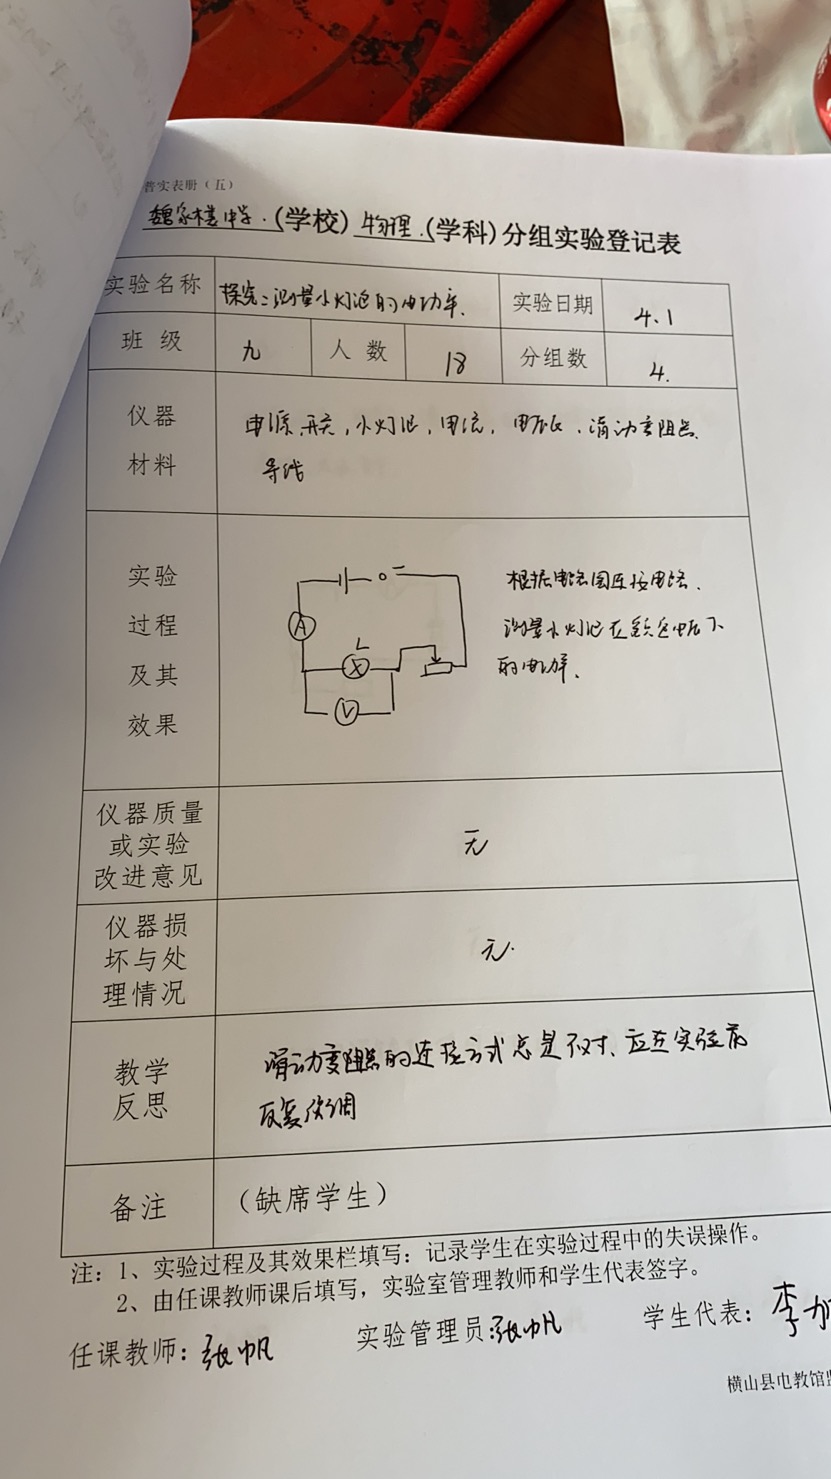 普实表册（五）
魏家楼中学.(学校)物理.(学科)分组实验登记表
实验名称 探究:测量小灯泡的电功率. 实验日期 4.1
班级 九 人数 18 分组数 4.
仪器
材料
电源,开关,小灯泡,电流,电压,滑动变阻器
导线
实验
过程
及其
效果
A
L
V
根据电路图连接电路、
测量小灯泡在额定电压下
的电功率.
仪器质量
或实验
改进意见
无
仪器损
坏与处
理情况
无.
教学
反思
滑动变阻器的连接方式总是不对、应在实验前
反复强调
备注 （缺席学生）
注：1、实验过程及其效果栏填写：记录学生在实验过程中的失误操作。
2、由任课教师课后填写，实验室管理教师和学生代表签字。
任课教师：张帆 实验管理员:张帆 学生代表：李
横山县电教馆